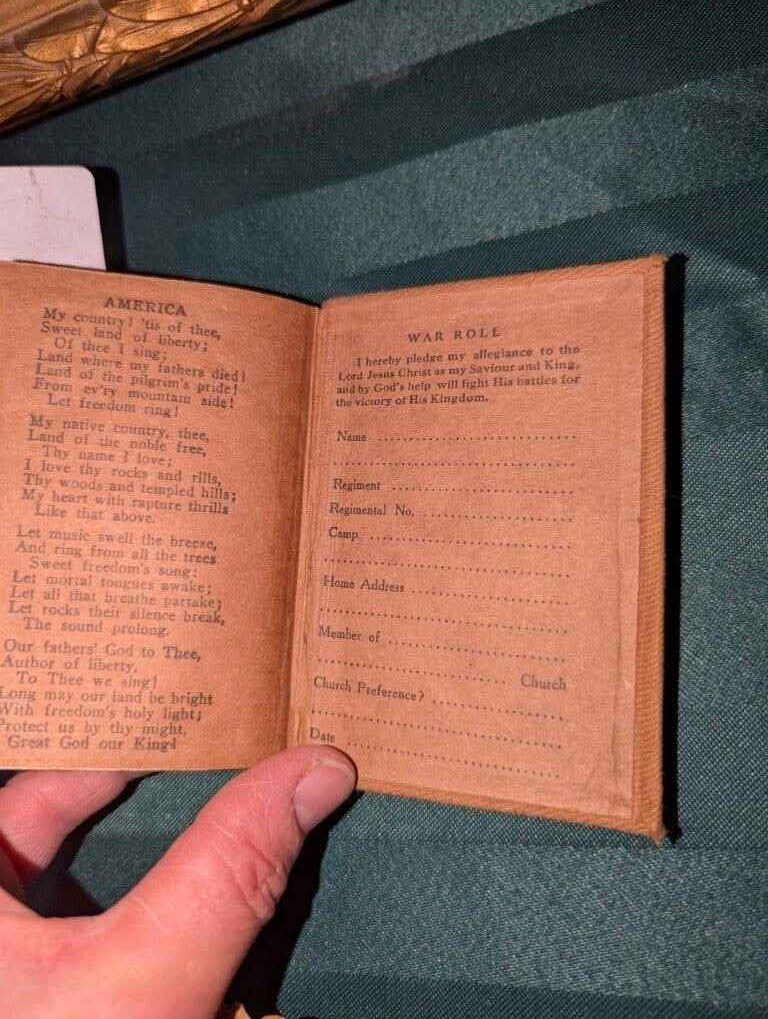 AMERICA
My country! 'tis of thee,
Sweet land of liberty;
Of thee I sing;
Land where my fathers died!
Land of the pilgrim's pride!
From ev'ry mountain side!
Let freedom ring!
My native country, thee,
Land of the noble free,
Thy name I love;
I love thy rocks and rills,
Thy woods and templed hills;
My heart with rapture thrills
Like that above.
Let music swell the breeze,
And ring from all the trees
Sweet freedom's song;
Let mortal tongues awake;
Let all that breathe partake;
Let rocks their silence break,
The sound prolong.
Our fathers' God to Thee,
Author of liberty,
To Thee we sing!
Long may our land be bright
With freedom's holy light;
Protect us by thy might,
Great God our King!
WAR ROLL
I hereby pledge my allegiance to the
Lord Jesus Christ as my Saviour and King,
and by God's help will fight His battles for
the victory of His Kingdom.
Name
Regiment
Regimental No.
Camp
Home Address
Member of
Church
Church Preference?
Date